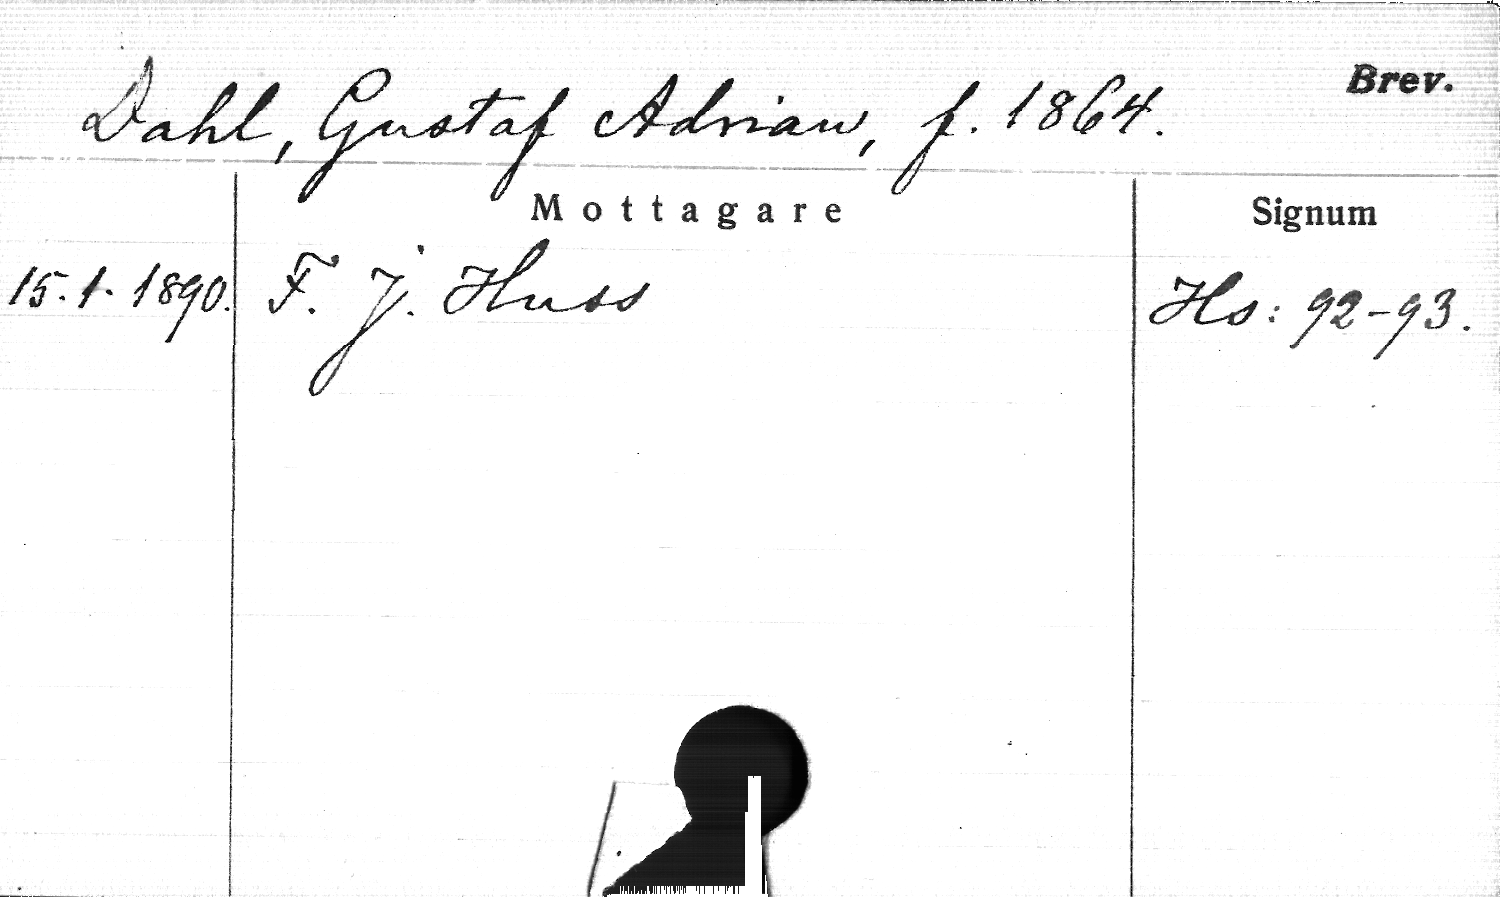 Brev.
Dahl, Gustaf Adrian, f. 1864.
Mottagare Signum
15.1.1890. F. J. Huss Hs: 92-93.